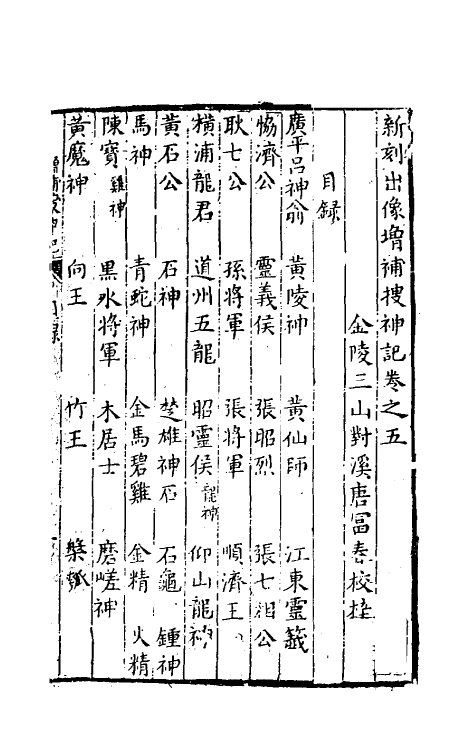 新刻出像增補搜神記卷之五
金陵三山對溪唐冨春校梓
目録
廣平吕神翁 黃陵神 黃仙師 江東靈籤
恊濟公 靈義侯 張昭烈 張七相公
耿七公 孫將軍 張將軍 順濟王
橫浦龍君 道州五龍 昭靈侯龍神 仰山龍神
黃石公 石神 楚雄神石 石龜 鍾神
馬神 青蛇神 金馬碧雞 金精 火精
陳寳雞神 黑水將軍 木居士 磨嵯神
黃魔神 向王 竹王 槃瓠